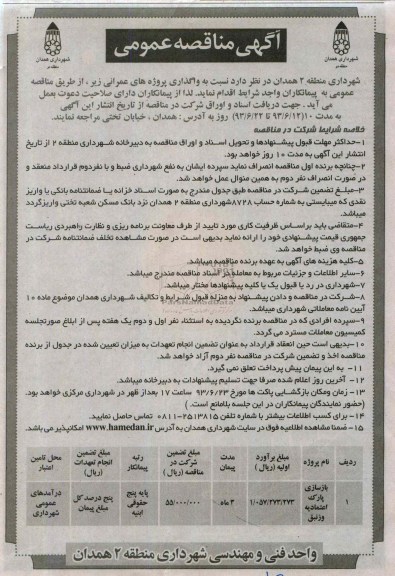 شهرداری همدان
آگهی مناقصه عمومی
شهرداری همدان
شهرداری منطقه ۲ همدان در نظر دارد نسبت به واگذاری پروژه های عمرانی زیر ، از طریق مناقصه
عمومی به پیمانکاران واجد شرایط اقدام نماید. لذا از پیمانکاران دارای صلاحیت دعوت بعمل
می آید . جهت دریافت اسناد و اوراق شرکت در مناقصه از تاریخ انتشار این آگهی
به مدت ۱۰ (۹۳/۶/۱۲ تا ۹۳/۶/۲۲) روز به آدرس : همدان ، خیابان تختی مراجعه نمایند.
خلاصه شرایط شرکت در مناقصه
۱-حداکثر مهلت قبول پیشنهادها و تحویل اسناد و اوراق مناقصه به دبیرخانه شهرداری منطقه ۲ از تاریخ
انتشار این آگهی به مدت ۱۰ روز خواهد بود.
۲-چنانچه برنده اول مناقصه انصراف نماید سپرده ایشان به نفع شهرداری ضبط و با نفردوم قرارداد منعقد و
در صورت انصراف نفر دوم به همین منوال عمل خواهد شد.
۳-مبلغ تضمین شرکت در مناقصه طبق جدول مندرج به صورت اسناد خزانه یا ضمانتنامه بانکی یا واریز
نقدی که میبایستی به شماره حساب ۸۷۲۸شهرداری منطقه ۲ همدان نزد بانک مسکن شعبه تختی واریزگردد
میباشد.
۴-متقاضی باید براساس ظرفیت کاری مورد تایید از طرف معاونت برنامه ریزی و نظارت راهبردی ریاست
جمهوری قیمت پیشنهادی خود را ارائه نماید بدیهی است در صورت مشاهده تخلف ضمانتنامه شرکت در
مناقصه وی ضبط خواهد شد.
۵-کلیه هزینه های آگهی به عهده برنده مناقصه میباشد.
۶-سایر اطلاعات و جزئیات مربوط به معامله در اسناد مناقصه مندرج میباشد.
۷-شهرداری در رد یا قبول یک یا کلیه پیشنهادها مختار میباشد.
۸-شرکت در مناقصه و دادن پیشنهاد به منزله قبول شرایط و تکالیف شهرداری همدان موضوع ماده ۱۰
آیین نامه معاملاتی شهرداری میباشد.
۹-سپرده افرادی که در مناقصه برنده نگردیده به استثناء نفر اول و دوم یک هفته پس از ابلاغ صورتجلسه
کمیسیون معاملات مسترد می گردد.
۱۰-بدیهی است حین انعقاد قرارداد به عنوان تضمین انجام تعهدات به میزان تعیین شده در جدول از برنده
مناقصه اخذ و تضمین شرکت در مناقصه نفر دوم آزاد خواهد شد.
۱۱- به این پیمان پیش پرداخت تعلق نمی گیرد.
۱۲- آخرین روز اعلام شده صرفا جهت تسلیم پیشنهادات به دبیرخانه میباشد.
۱۳- زمان ومکان بازگشایی پاکت ها مورخ ۹۳/۶/۲۳ ساعت ۱۷ بعداز ظهر در شهرداری مرکزی خواهد بود.
(حضور نمایندگان پیمانکاران در این جلسه بلامانع است.)
۱۴- برای کسب اطلاعات بیشتر با شماره تلفن ۲۵۱۳۸۱۵-۰۸۱۱ تماس حاصل نمایید.
۱۵- ضمنا مشاهده اطلاعیه فوق در سایت شهرداری همدان به آدرس www.hamedan.ir امکانپذیر می باشد.
ردیف نام پروژه مبلغ برآورد اولیه (ریال) مدت پیمان مبلغ تضمین شرکت در مناقصه (ریال) رتبه پیمانکار مبلغ تضمین انجام تعهدات (ریال) محل تامین اعتبار
۱ بازسازی پارک اعتمادیه وزنبق ۱/۰۵۷/۲۷۳/۴۷۳ ۳ ماه ۵۵/۰۰۰/۰۰۰ پایه پنج حقوقی ابنیه پنج درصد کل مبلغ پیمان درآمدهای عمومی شهرداری
واحد فنی و مهندسی شهرداری منطقه ۲ همدان